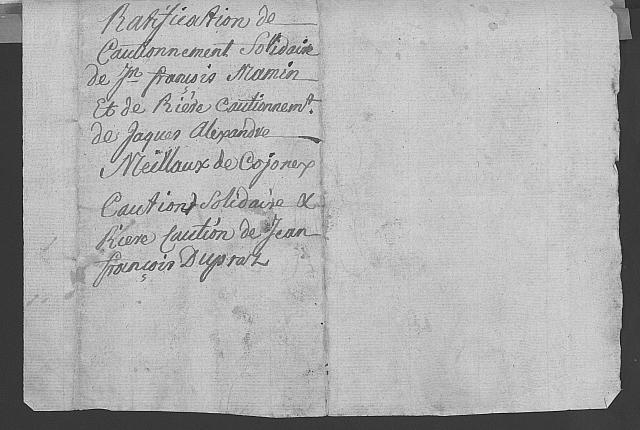 Ratification de
Cautionnement Solidaire
de Jn françois Mamin
Et de Riére Cautionnemt.
de Jaques Alexandre
Meillaux de Cojonex
Caution Solidaire &
Riere Caution de Jean
françois Dupraz